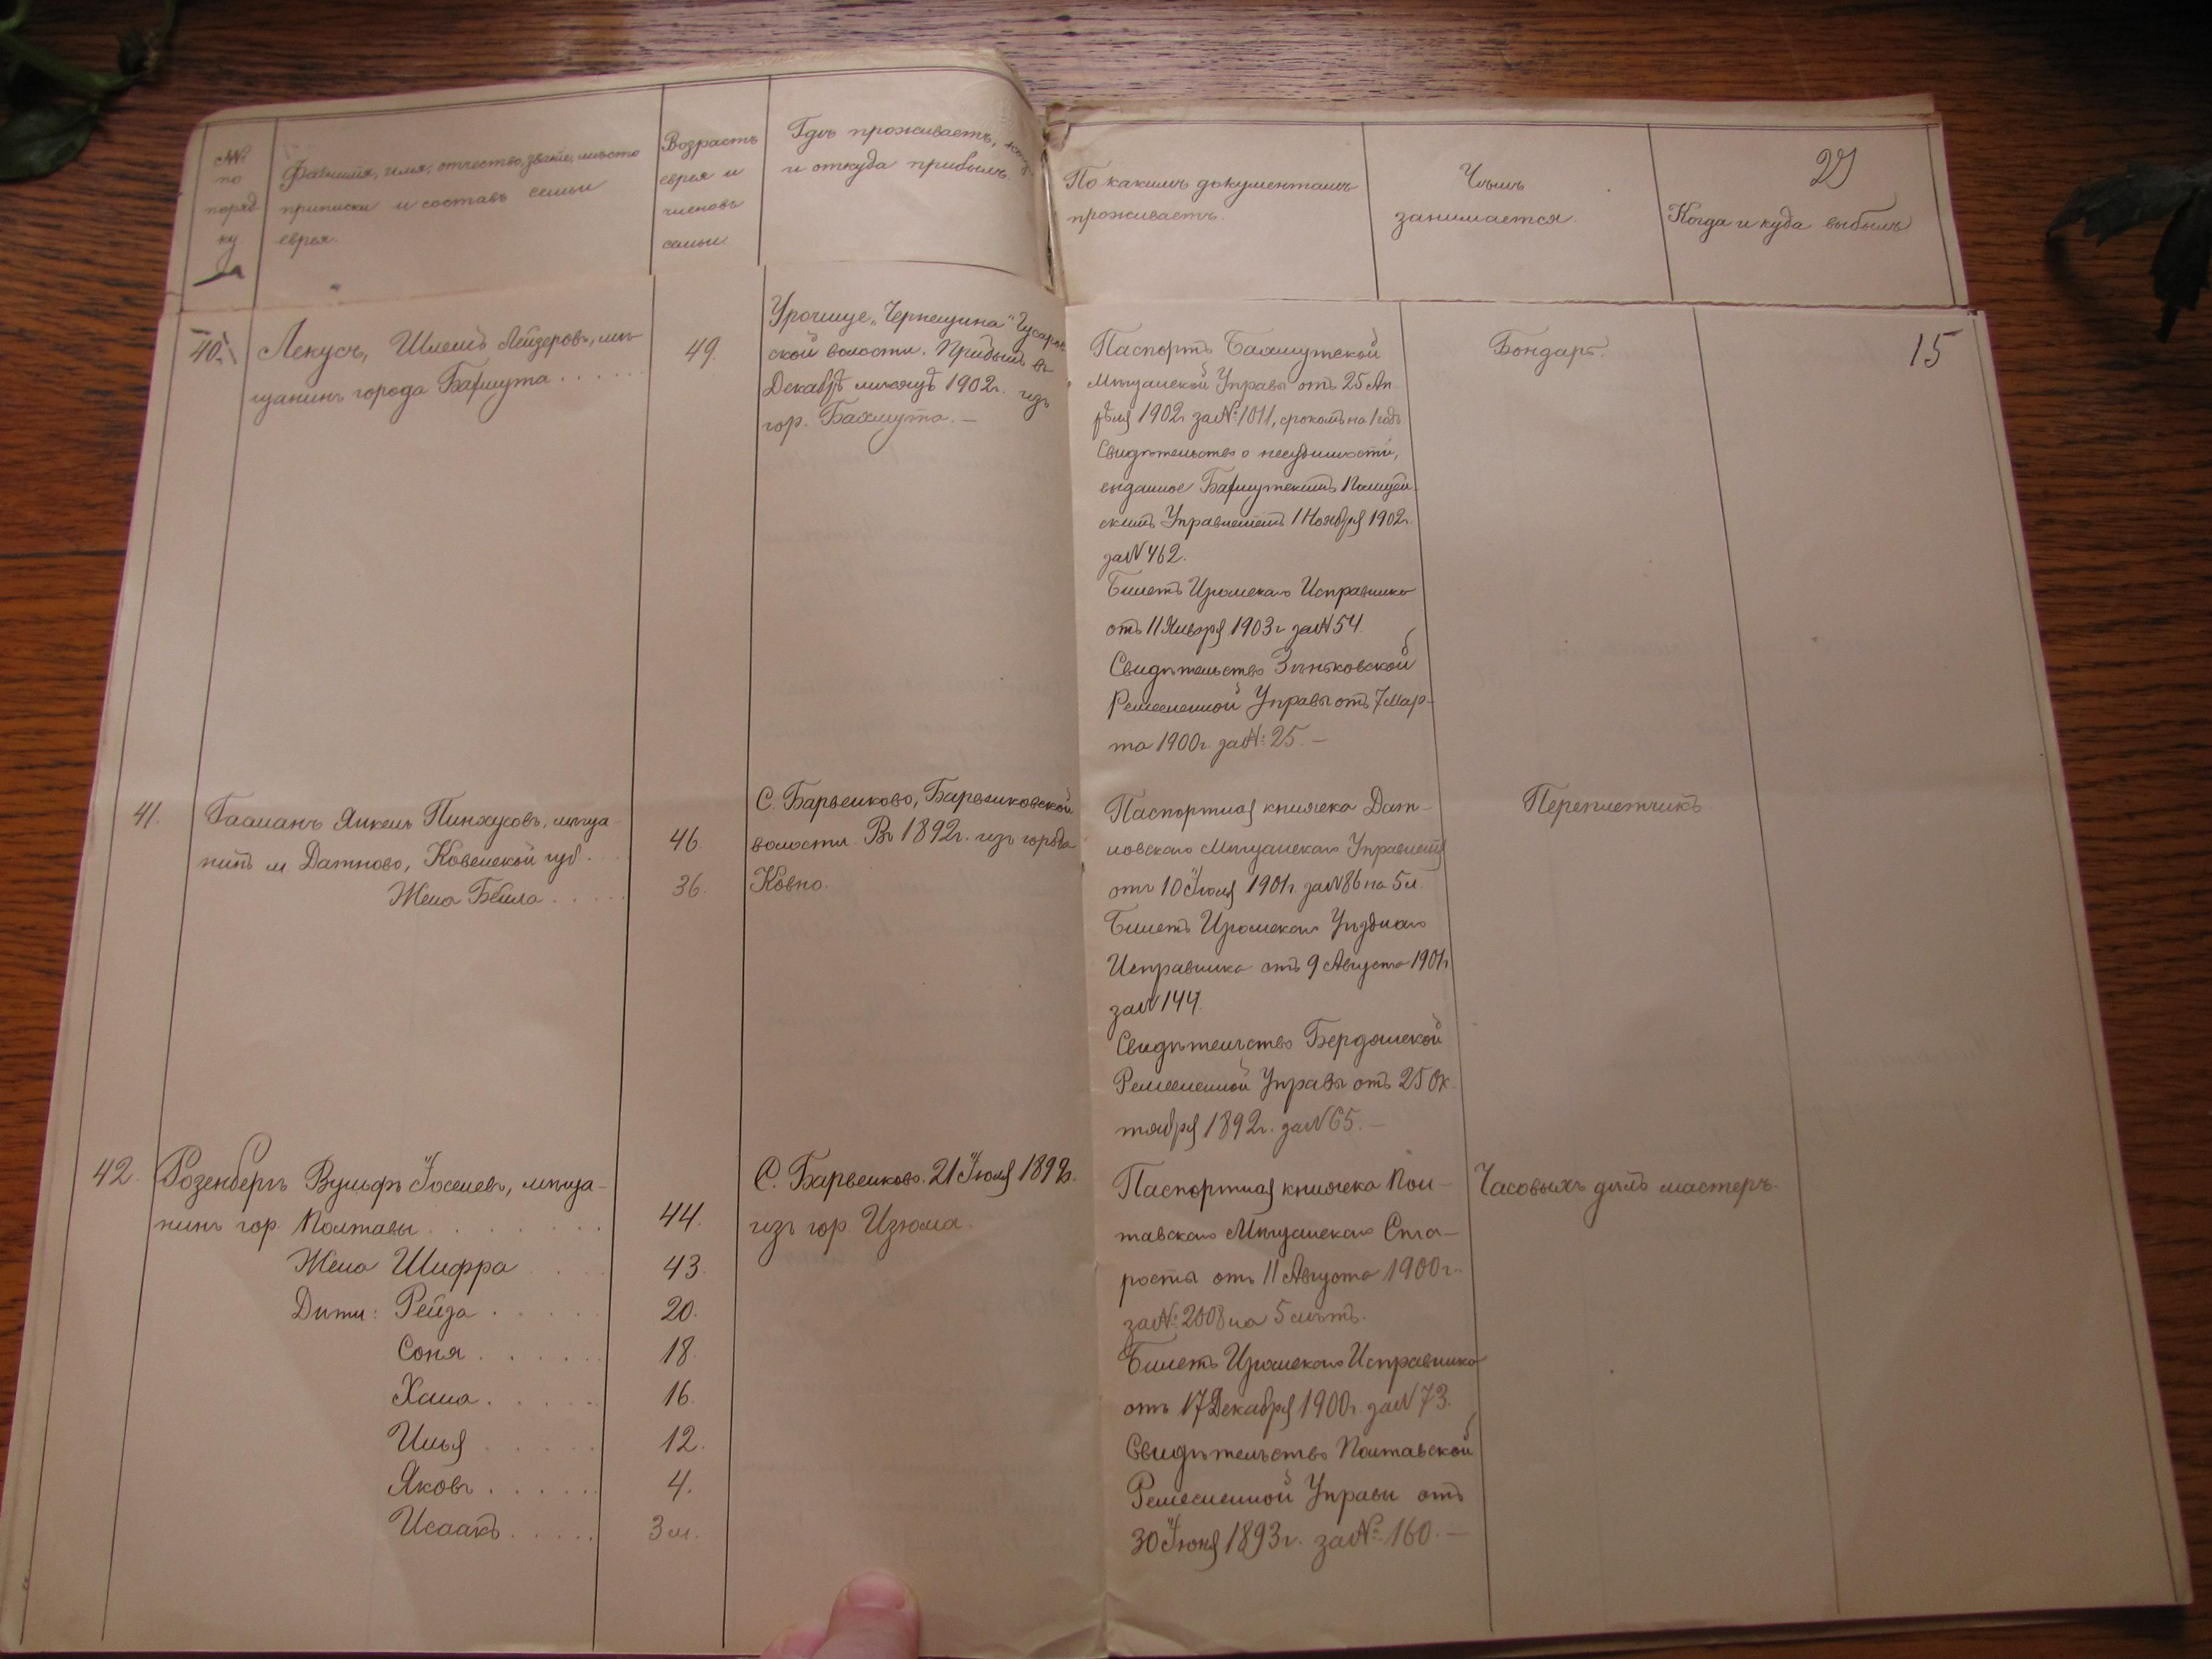 №№
по
поряд
ку
Фамилія, имя, отчество, званіе, мѣсто
приписки и составъ семьи
еврея.
Возрастъ
еврея и
членовъ
семьи
Гдѣ проживаетъ,
и откуда прибылъ.
По какимъ документамъ
проживаетъ.
Чѣмъ
занимается.
Когда и куда выбылъ
40.
Лекусъ, Шлема Лейзеровъ, мѣ-
щанинъ города Бахмута . . . . .
49.
Урочище „Чернещина" Гусаров
ской волости. Прибылъ въ
Декабрѣ мѣсяцѣ 1902г. изъ
гор. Бахмута. —
Паспортъ Бахмутской
Мѣщанской Управы отъ 25 Ап
рѣля 1902г. за № 1011, срокомъ на 1 годъ
Свидѣтельство о несудимости,
выданное Бахмутскимъ Полицей-
скимъ Управленіемъ 1 Ноября 1902г.
за № 462.
Билетъ Изюмскаго Исправника
отъ 11 Января 1903г за № 54.
Свидѣтельство Зѣньковской
Ремесленной Управы отъ 7 Мар-
та 1900г. за № 25. —
Бондарь.
15
41.
Гаманъ Янкель Пинхусовъ, мѣща-
нинъ м Датново, Ковенской губ. . .
Жена Бейла . . . . .
46.
36.
С. Барвенково, Барвенковской
волости. Въ 1892г. изъ города
Ковно.
Паспортная книжка Дат-
новскаго Мѣщанскаго Управленія
отъ 10 Іюля 1901г. за № 86 на 5 л.
Билетъ Изюмскаго Уѣзднаго
Исправника отъ 9 Августа 1901г
за № 144.
Свидѣтельство Бердянской
Ремесленной Управы отъ 25 Ок-
тября 1892г. за № 65. —
Переплетчикъ.
42.
Розенбергъ Вульфъ Іоселевъ, мѣща-
нинъ гор. Полтавы . . . . . . . .
Жена Шифра . . .
Дѣти: Рейза . . . . .
Соня . . . . . .
Хана . . . . .
Илья . . . . .
Яковъ . . . . .
Исаакъ . . . . .
44.
43.
20.
18.
16.
12.
4.
3 м.
С. Барвенково. 21 Іюля 1892г.
изъ гор. Изюма.
Паспортная книжка Пол-
тавскаго Мѣщанскаго Ста-
росты отъ 11 Августа 1900г.
за № 2008 на 5 лѣтъ.
Билетъ Изюмскаго Исправника
отъ 17 Декабря 1900г. за № 73.
Свидѣтельство Полтавской
Ремесленной Управы отъ
30 Іюня 1893г. за № 160. —
Часовыхъ дѣлъ мастеръ.